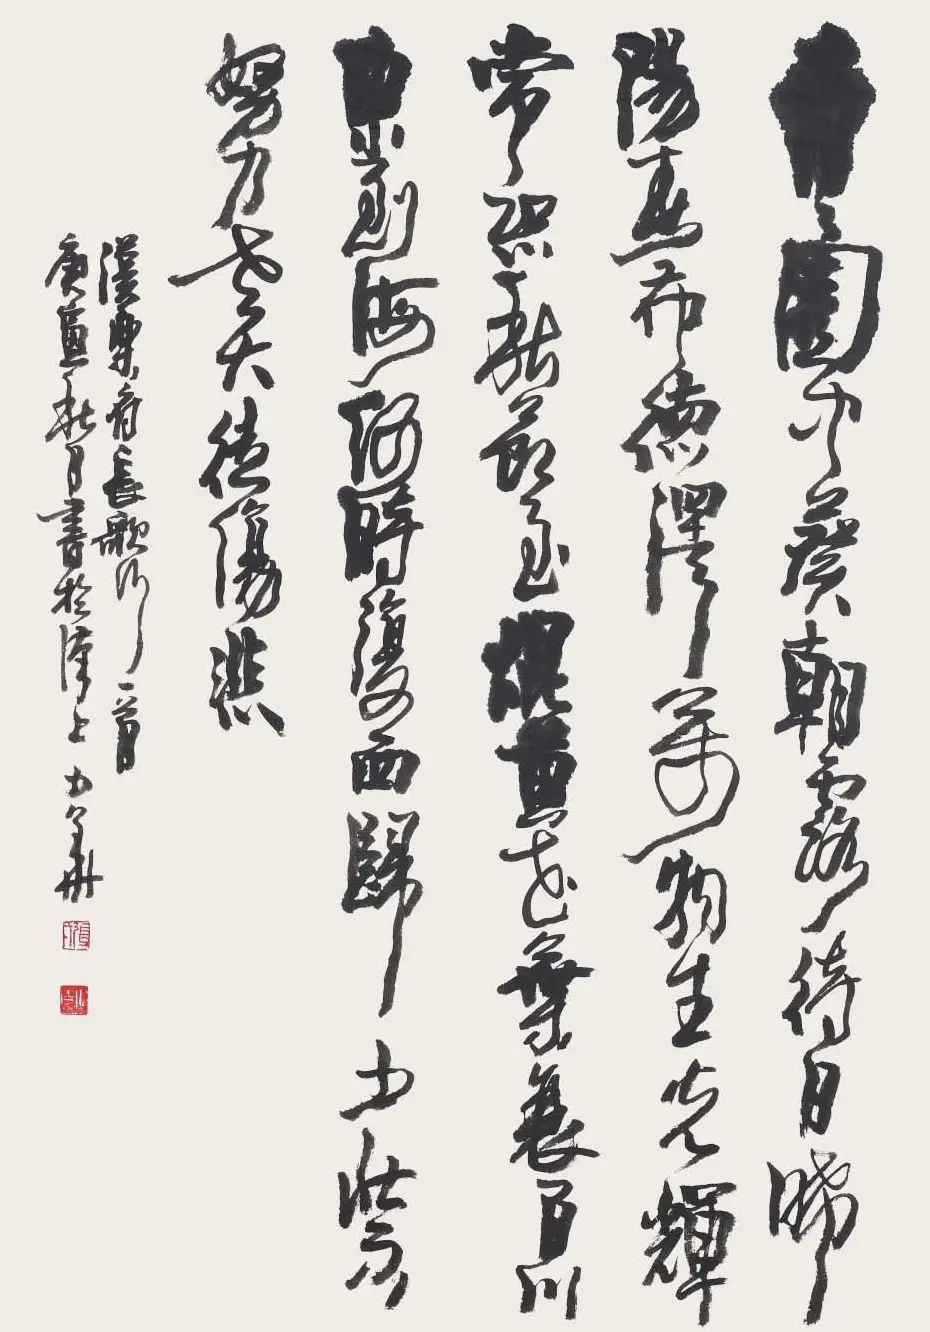 青々園中葵朝露待日晞
陽春布德澤萬物生光輝
常恐秋節至焜黃花葉衰百川
東到海何時復西歸少壯不
努力老大徒傷悲
漢樂府長歌行一首
庚寅秋月書於漢上